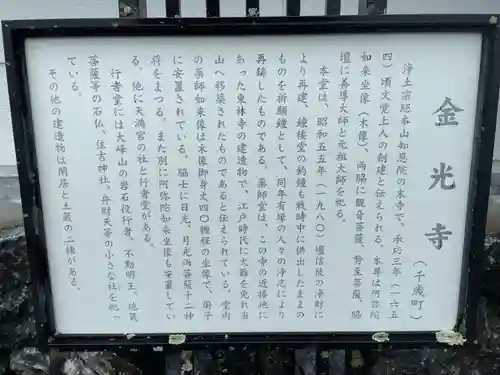 金光寺
(千歳町)
浄土宗総本山知恩院の末寺で、承応三年(一六五
四)頃文覚上人の創建と伝えられる。本尊は阿弥陀
如来坐像(木像)、両脇に観音菩薩、勢至菩薩、脇
壇に善導大師と元祖大師を祀る。
本堂は、昭和五五年(一九八〇)檀信徒の浄財に
より再建、鐘楼堂の釣鐘も戦時中に供出したままの
ものを祈願鐘として、同年有縁の人々の浄志により
再鋳したものである。薬師堂は、この寺の近接地に
あった東林寺の建造物で、江戸時代に火難を免れ当
山へ移築されたものであると伝えられている。堂内
の薬師如来像は木像御身丈四〇糎程の坐像で、厨子
に安置されている。脇士に日光、月光両菩薩十二神
将をまつる。また別に阿弥陀如来坐像も安置してい
る。他に天満宮の社と行者堂がある。
行者堂には大峰山の岩石役行者、不動明王、地蔵
菩薩等の石仏、住吉神社、弁財天等の小さな社を祀っ
ている。
その他の建造物は閑居と土蔵の二棟がある。